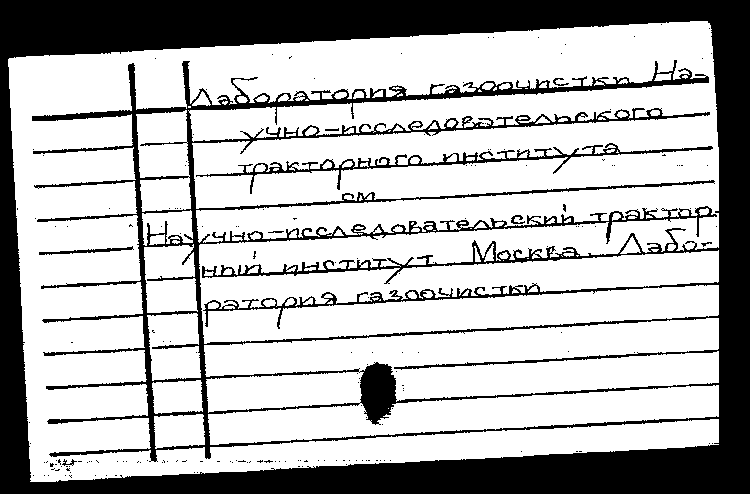 Лаборатория газоочистки На-
учно-исследовательского
тракторного института
см
Научно-исследовательский трактор-
ный институт. Москва. Лабо-
ратория газоочистки